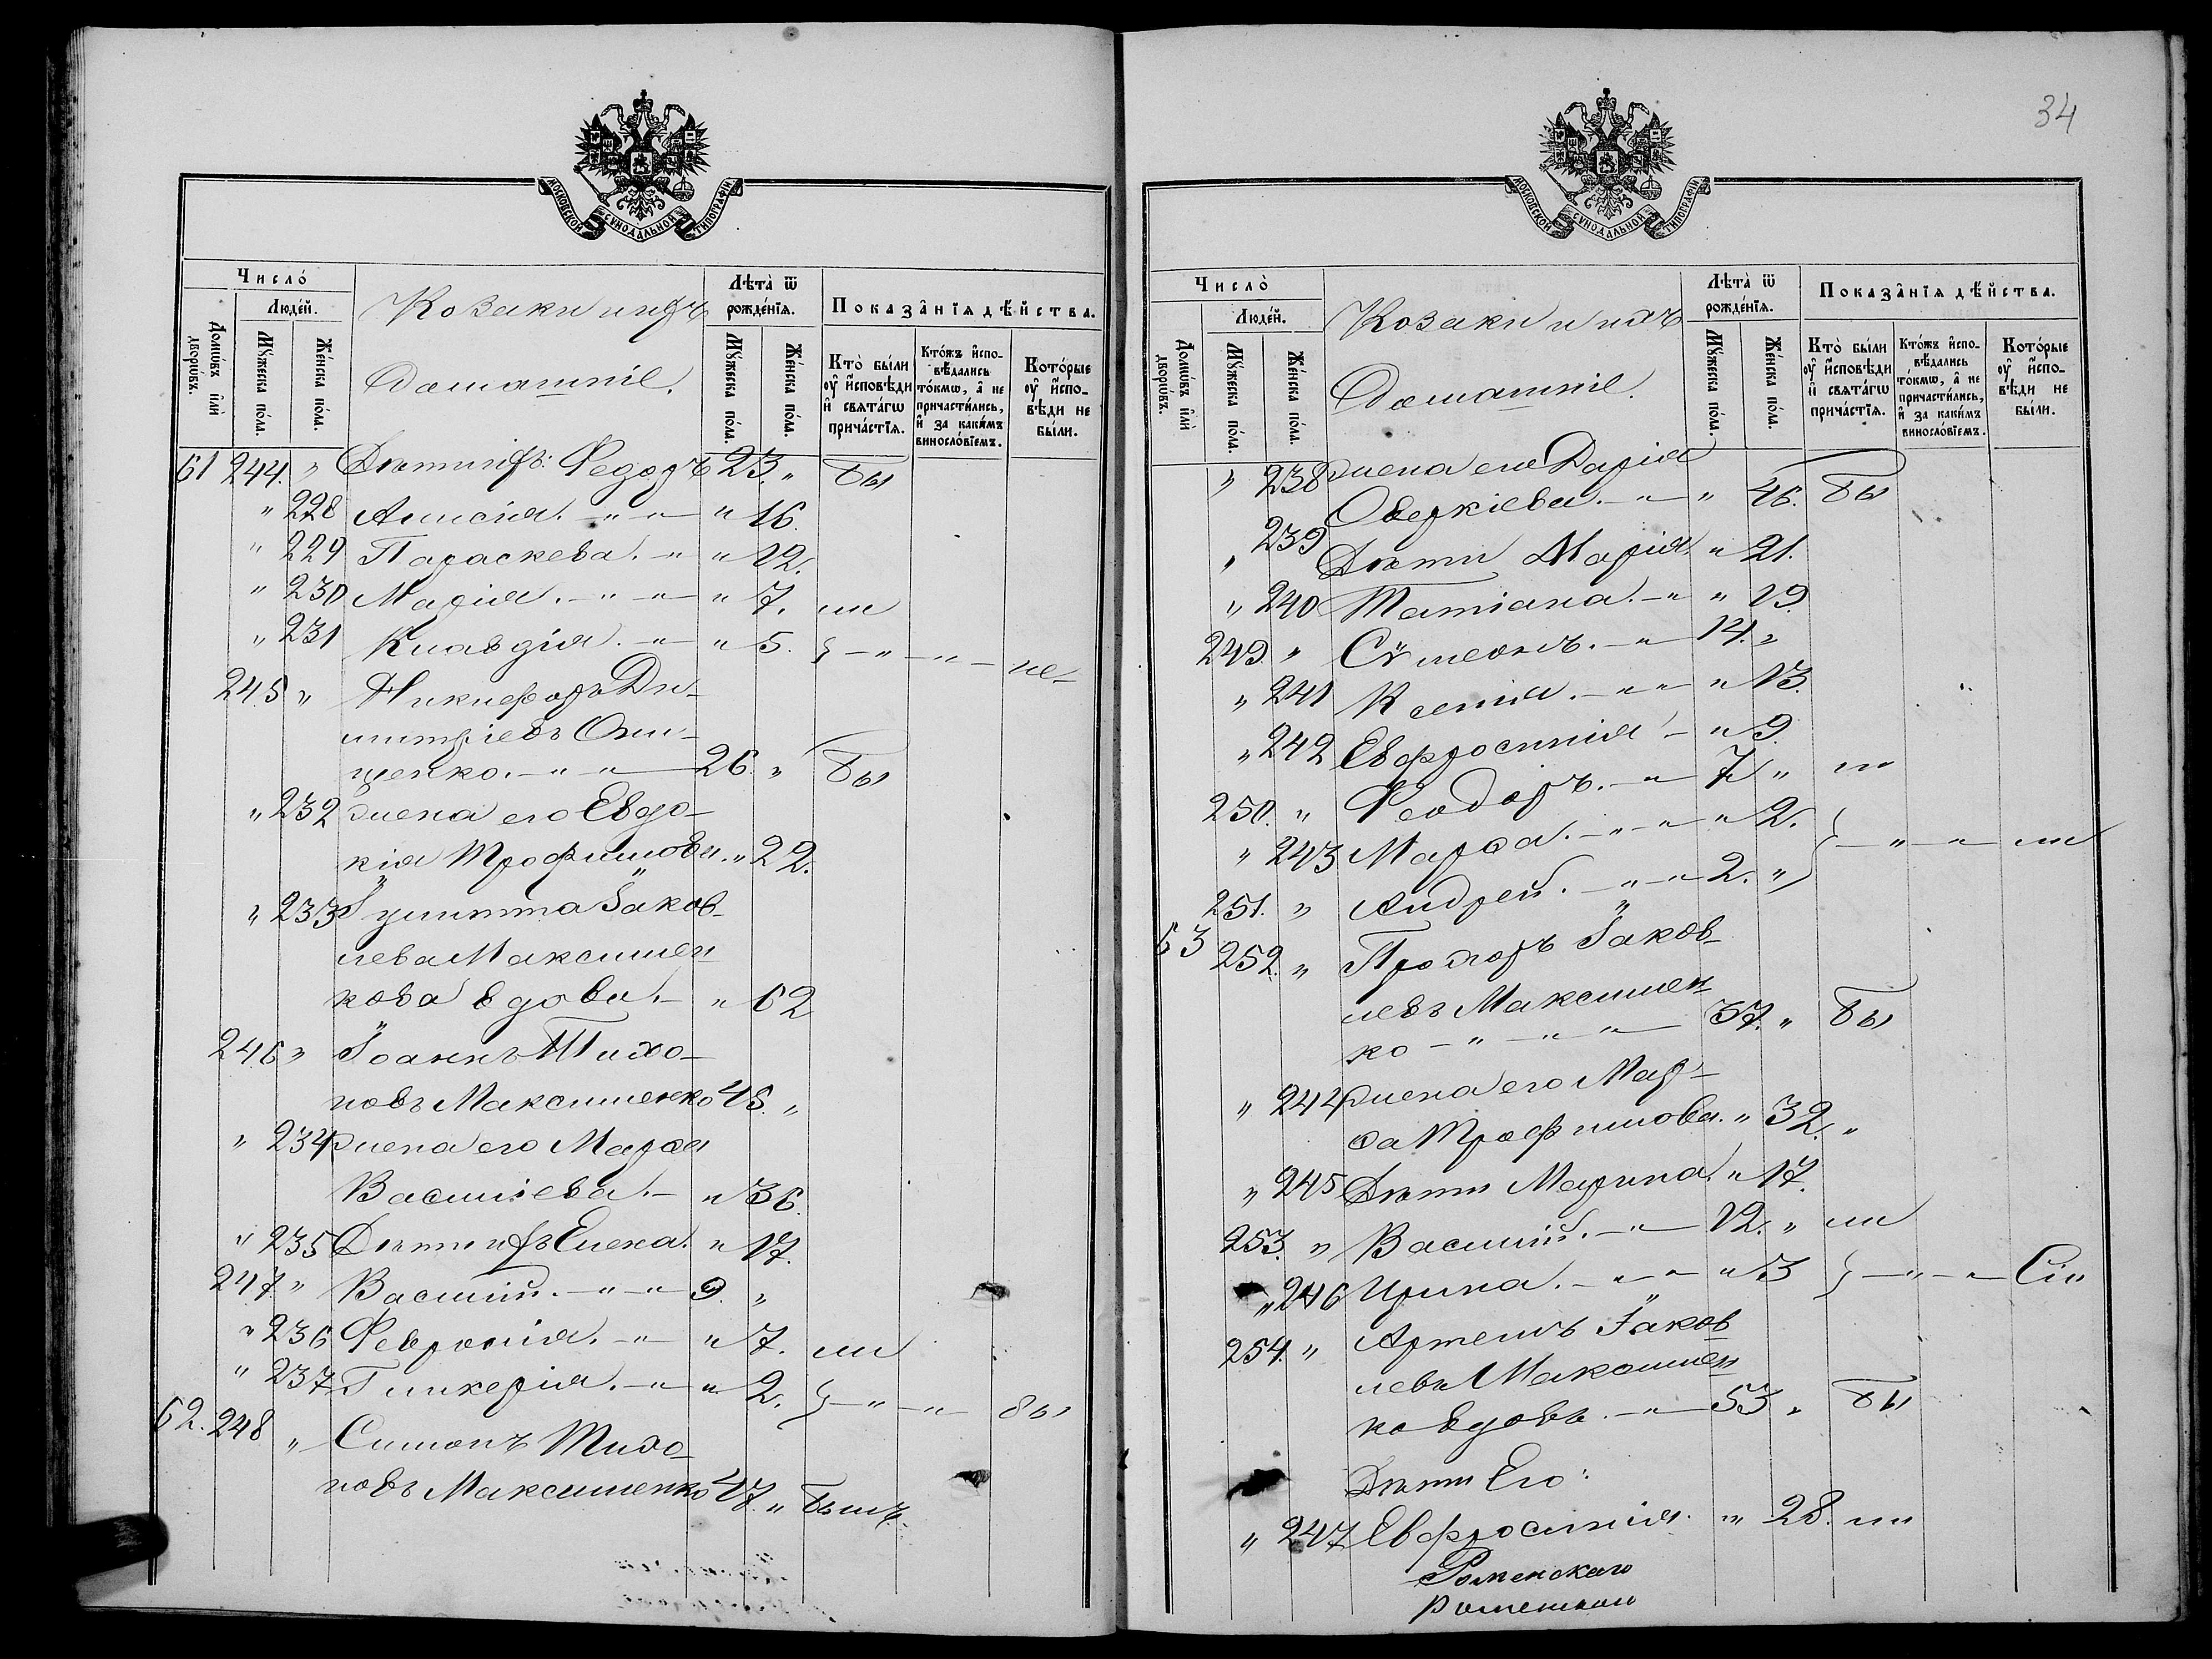 34
МОСКОВСКОЙ СУНОДАЛЬНОЙ ТИПОГРАФІИ
Число́
Люде́й.
Домѡ́въ и҆лѝ дворѡ́въ.
Мꙋ́жеска по́ла.
Же́нска по́ла.
Козаки и ихъ
Домашніе.
Лѣ́та ѿ рожде́нїѧ.
Мꙋ́жеска по́ла.
Же́нска по́ла.
Показа̑нїѧ дѣ́йства.
Кто̀ бы́ли оу҆ и҆сповѣ́ди и҆ свѧта́гѡ прича́стїѧ.
Кто́жъ и҆спо-вѣ́дались то́кмѡ, а҆ не причасти́лись, и҆ за каки́мъ винослові́емъ.
Кото́рые оу҆ и҆спо-вѣ́ди не бы́ли.
61 244. " Дѣти ихъ: Федоръ 23. " бы
" 228 Анисія. - " - " 16.
" 229 Параскева. - " " 12.
" 230 Марія. - " - " 7. ли
" 231 Клавдія. - " - " 5. } - " - " - не-
245 " Никифоръ Ди-
митріевъ Они-
щенко. - " - " - 26. " бы
" 232 жена его Евдо-
кія Трофимова. " 22.
" 233 Іулитта Іаков-
лева Максимен
кова вдова. - " 62
246 " Іоаннъ Тихо-
новъ Максименко 45. "
" 234 жена его Марѳа
Васильева. - " 36.
" 235 Дѣти ихъ Елена. " 17.
247 " Василій. - " - " 9. "
" 236 Февронія. - " - " 7. ли
" 237 Гликерія. - " - " 2. } - " - " - бы
62. 248 " Симонъ Тихо-
новъ Максименко 47. " былъ
МОСКОВСКОЙ СУНОДАЛЬНОЙ ТИПОГРАФІИ
Число̀
Люде́й.
Домѡ́въ и҆лѝ дворѡ́въ.
Мꙋ́жеска по́ла.
Же́нска по́ла.
Козаки и ихъ
Домашніе.
Лѣ́та ѿ рожде́нїѧ.
Мꙋ́жеска по́ла.
Же́нска по́ла.
Показа̑нїѧ дѣ́йства.
Кто̀ бы́ли оу҆ и҆сповѣ́ди и҆ свѧта́гѡ прича́стїѧ.
Кто́жъ и҆спо-вѣ́дались то́кмѡ, а҆ не причасти́лись, и҆ за каки́мъ винослові́емъ.
Кото́рые оу҆ и҆спо-вѣ́ди не бы́ли.
" 238 жена его Дарія
Оверкіева. - " - " 46. бы
" 239 Дѣти Марія " 21.
" 240 Татіана. - " " 19.
249. " Сѵмеонъ. - " - 14. "
" 241 Ксенія. - " - " 13.
" 242 Евфросинія - " 9.
250. " Феодоръ. - " - 7 " ли
" 243 Марѳа. - " - " 2. } - " - " - ли
251. " Андрей. - " - " 2. "
63 252. " Прохоръ Іаков-
левъ Максимен
ко - " - " - " - 37. " бы
" 244 жена его Мар-
ѳа Трофимова. " 32. "
" 245 Дѣти Марина. " 17.
253. " Василій. - " - 12. " ли
" 246 Ирина. - " - " 3 } - " - "
254. " Артемъ Іаков
левъ Максимен
ко вдовъ. - " - 53 " бы
Дѣти Его:
" 247 Евфросинія. " 28. ли
Роменскаго